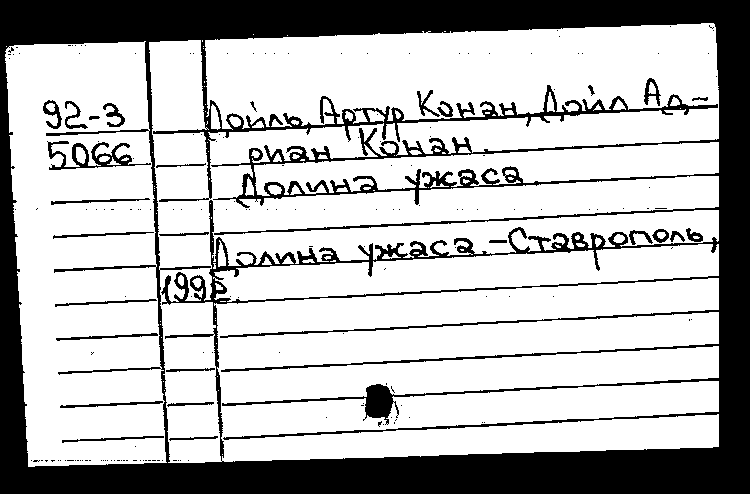 92-3 Дойль, Артур Конан, Дойл Ад-
5066 риан Конан.
Долина ужаса.
Долина ужаса.-Ставрополь,
1992.